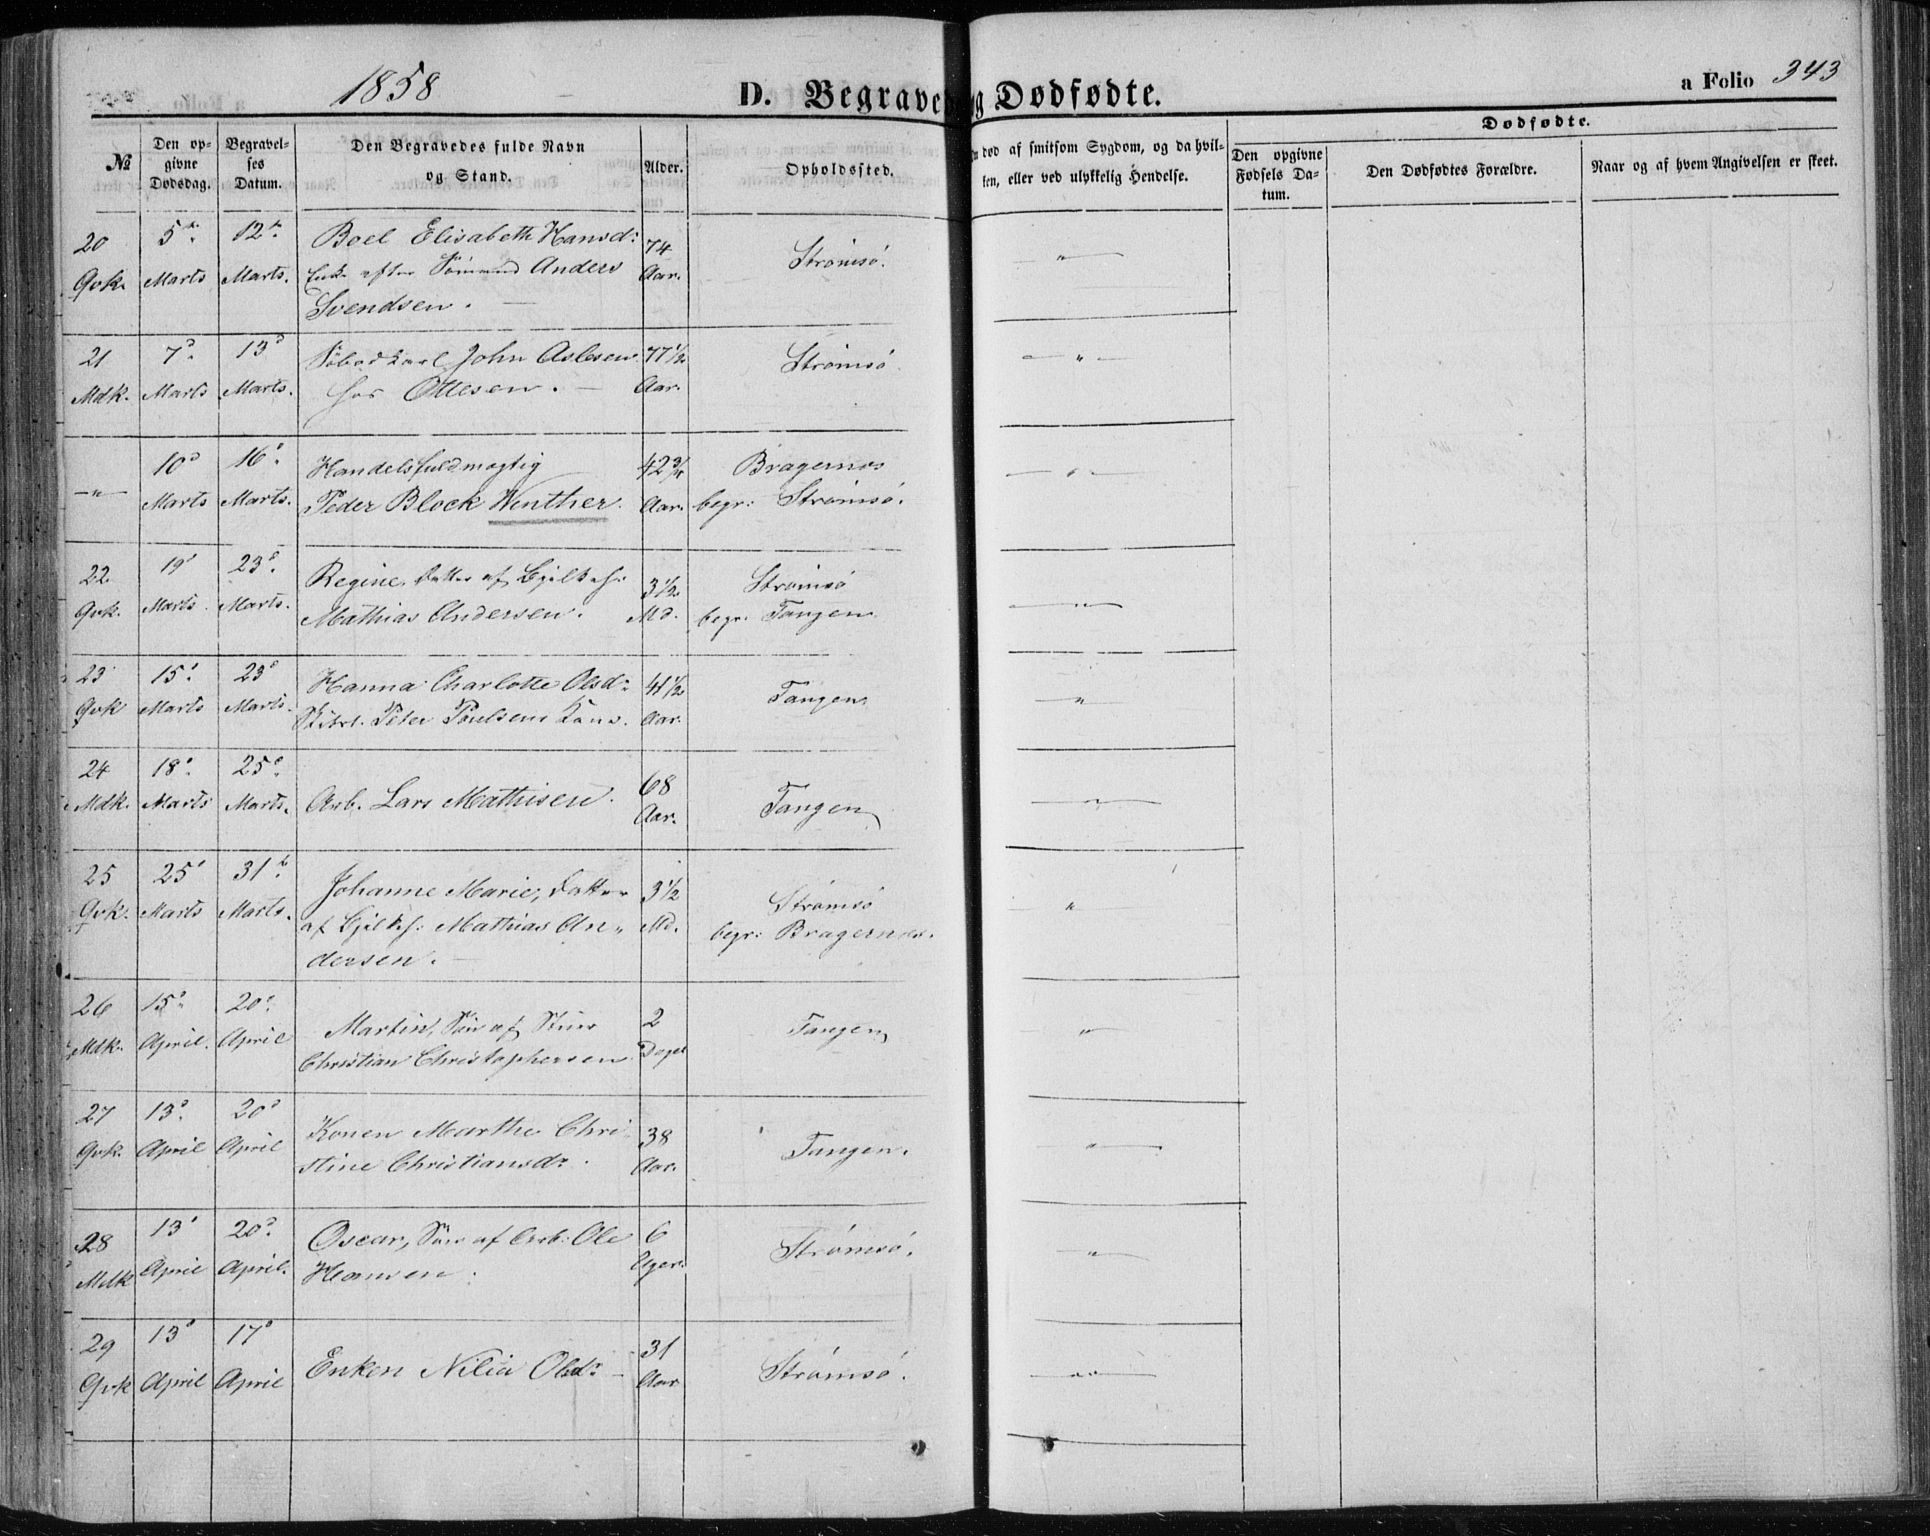 1858
D. Begravede og Dødfødte.
a Folio 343
Dødfødte.
№
Den opgivne Dødsdag.
Begravelses Datum.
Den Begravedes fulde Navn og Stand.
Alder.
Opholdssted.
død af smitsom Sygdom, og da hvilken, eller ved ulykkelig Hendelse.
Den opgivne Fødsels Datum.
Den Dødfødtes Forældre.
Naar og af hvem Angivelsen er skeet.
20 5te 12te Boel Elisabeth Hansd: 74
Qvk. Marts Marts. Enke efter Sömand Anders Aar. Strömsö. "
Svendsen.
21 7de 13de John Aslesen 77½ Strömsö. "
Mdk. Marts Marts. hos Ottesen. Aar.
10de 16de Handelsfuldmægtig 42¾ Bragernes "
" Marts Marts. Peder Block Winther. Aar. begr: Strömsö.
22 19de 23de Regine, Datter af 3½ Strömsö
Qvk. Marts. Marts. Mathias Andersen. Md. begr: Tangen "
23 15de 23de Hanna Charlotte Olsd: 41½ Tangen "
Qvk Marts Marts. Peter Poulsens Kone. Aar.
24 18de 25de 68
Mdk. Marts Marts. Arb. Lars Mathisen. Aar. Tangen "
25 25de 31te Johanne Marie, Datter 3½ Strömsö "
Qvk. Marts Marts. af Mathias An- Md. begr: Bragernes.
dersen.
26 15de 20de Martin, Sön af 2 Tangen "
Mdk. April. April Christian Christophersen Dage
27 13de 20de Konen Marthe Chri- 38 Tangen. "
Qvk. April April stine Christiansd: Aar.
28 13de 20de Oscar, Sön af Arb: Ole 6 Strömsö. "
Mdk April April. Hansen. Uger.
29 13de 17de 31
Qvk April April Enken Nilia Olsd: Aar Strömsö. "